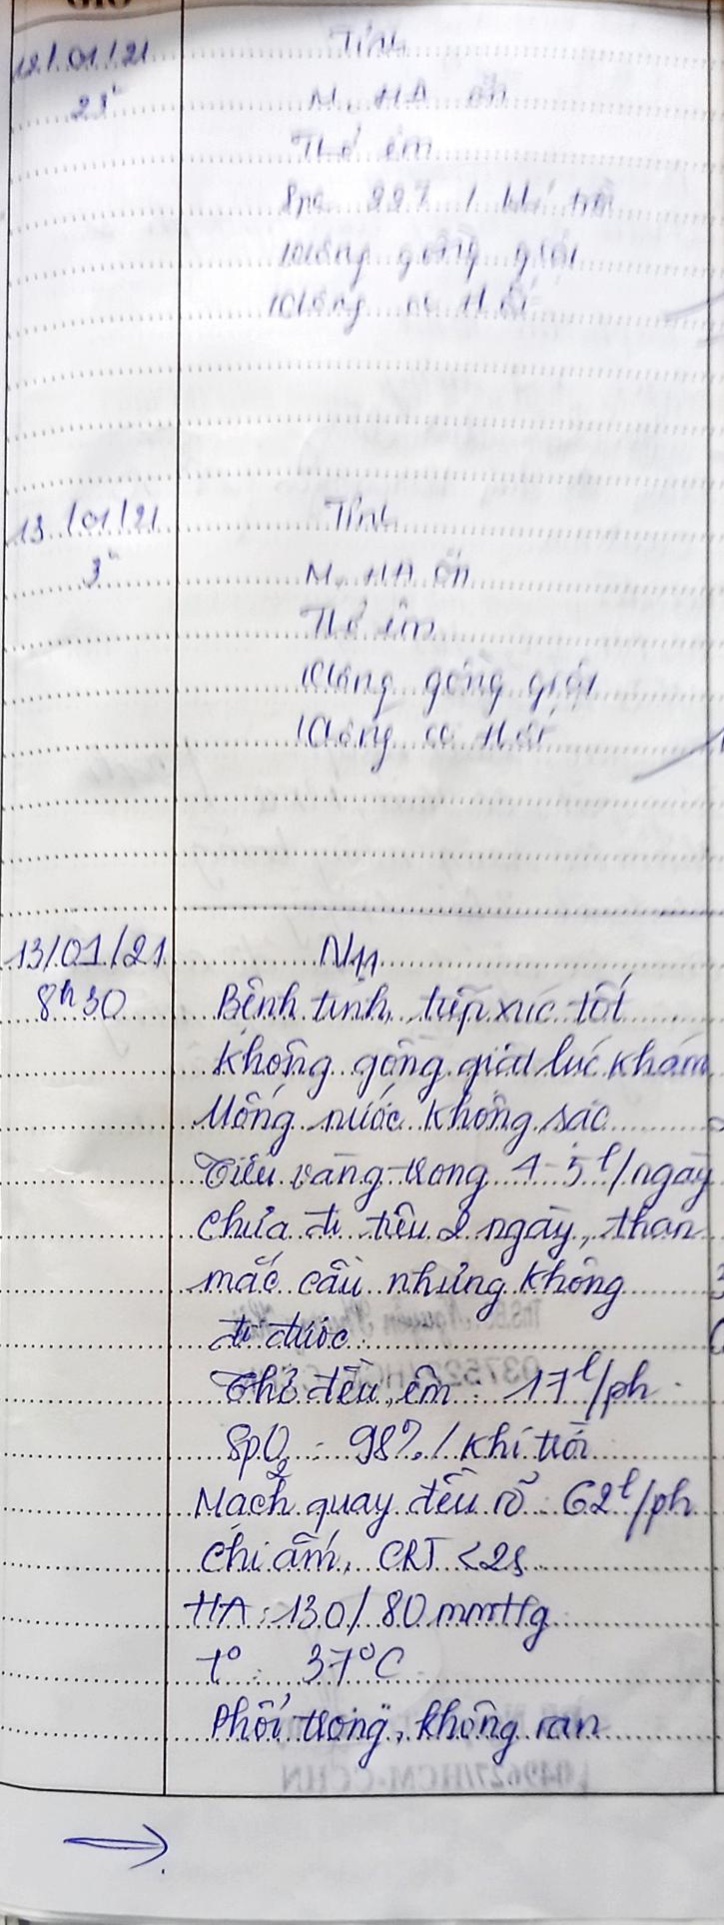 GIỜ
12/01/21
23h
Tỉnh
M, HA ổn
Thở êm
SpO2 99% / khí trời
Không gồng giật
Không co thắt
13/01/21
3h
Tỉnh
M, HA ổn
Thở êm
Không gồng giật
Không co thắt
13/01/21
8h30
N11
Bệnh tỉnh, tiếp xúc tốt
Không gồng giật lúc khám
Uống nước không sặc
Tiểu vàng trong 4-5 l/ngày
Chưa đi tiêu 2 ngày, than
mắc cầu nhưng không
đi được
Thở đều, êm : 17 l/ph
SpO2 : 98% / khí trời
Mạch quay đều rõ : 62 l/ph
Chi ấm, CRT <2s
HA : 130/80 mmHg
t° : 37°C
Phổi trong, không ran